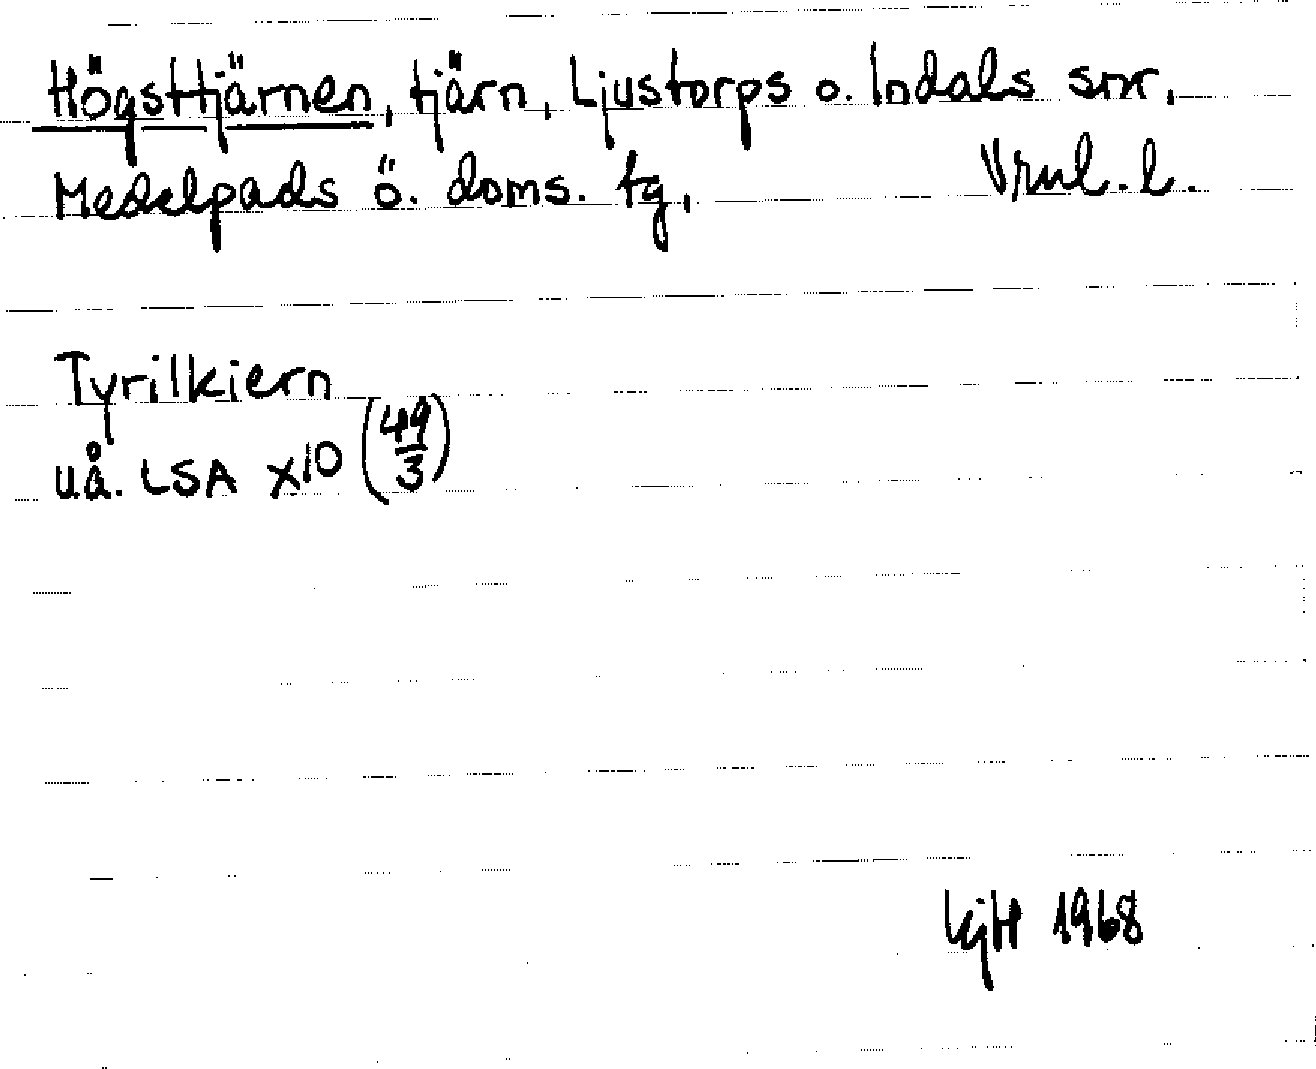 Högsttjärnen, tjärn, Ljustorps o. Indals snr,
Medelpads ö. doms. tg, Vrnl. l.
Tyrilkiern
u.å. LSA X10 (49/3)
1968